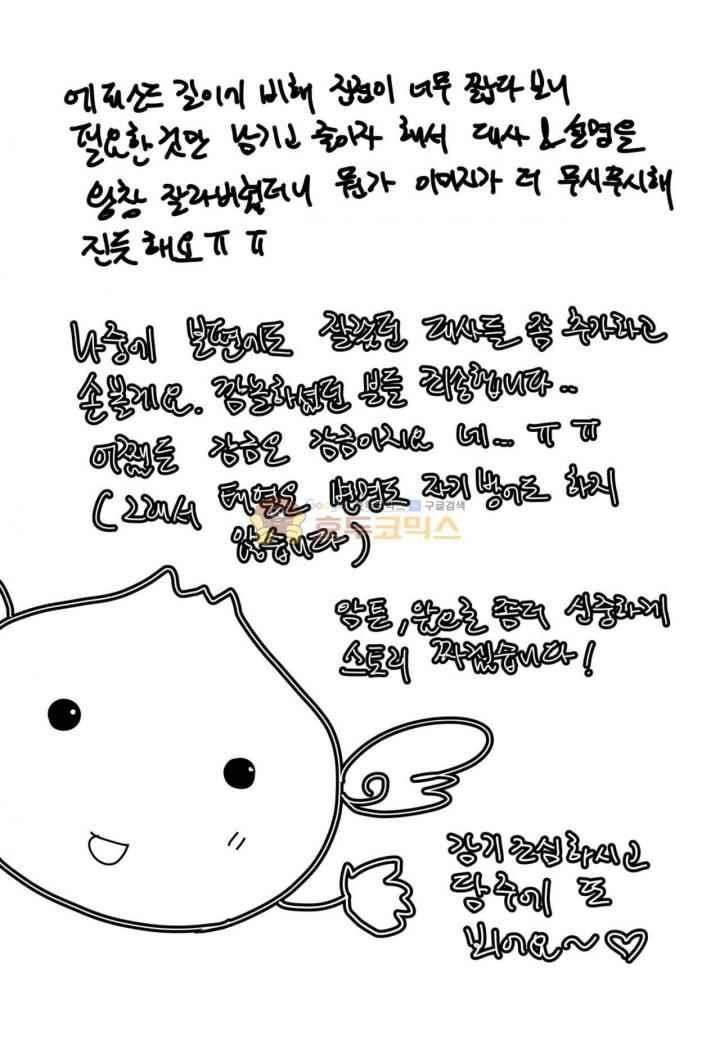 에피소드 길이에 비해 진전이 너무 짧다 보니
필요한 것만 남기고 줄이자 해서 대사 & 설명을
왕창 잘라버렸더니 뭔가 이미지가 더 무시무시해
진듯 해요ㅠㅠ
나중에 본편에도 잘랐던 대사들 좀 추가하고
손볼게요. 깜놀하셨던 분들 죄송합니다..
어쨌든 감금은 감금이지요 네... ㅠㅠ
(그래서 태경은 변명도 자기방어도 하지
않습니다)
구글검색
호두코믹스
암튼, 앞으로 좀더 신중하게
스토리 짜겠습니다!
감기조심하시고
담주에 또
뵈어요~♡